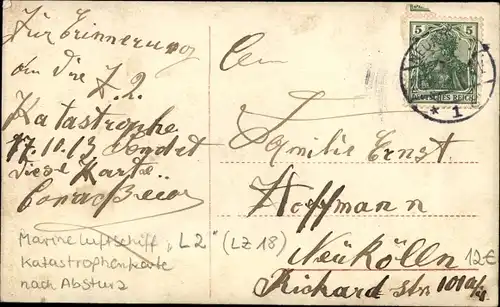 Zur Erinnerung
an die L. 2.
Katastrophe
17.10.13 sendet
diese Karte
Marine Luftschiff „L2" (LZ 18)
Katastrophenkarte
nach Absturz
5 5
DEUTSCHES REICH
* 1
An
Familie Ernst
Hoffmann
Neukölln
Richard str
12€